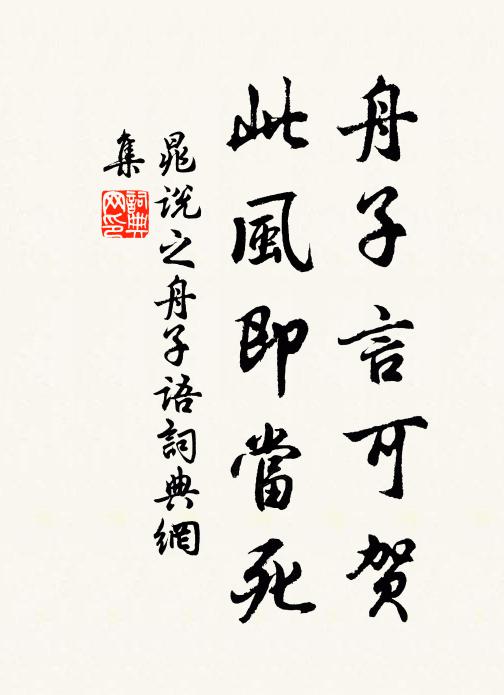 舟子言可贺
此風即當死
晁说之舟子語詞典網
集
詞典
网印